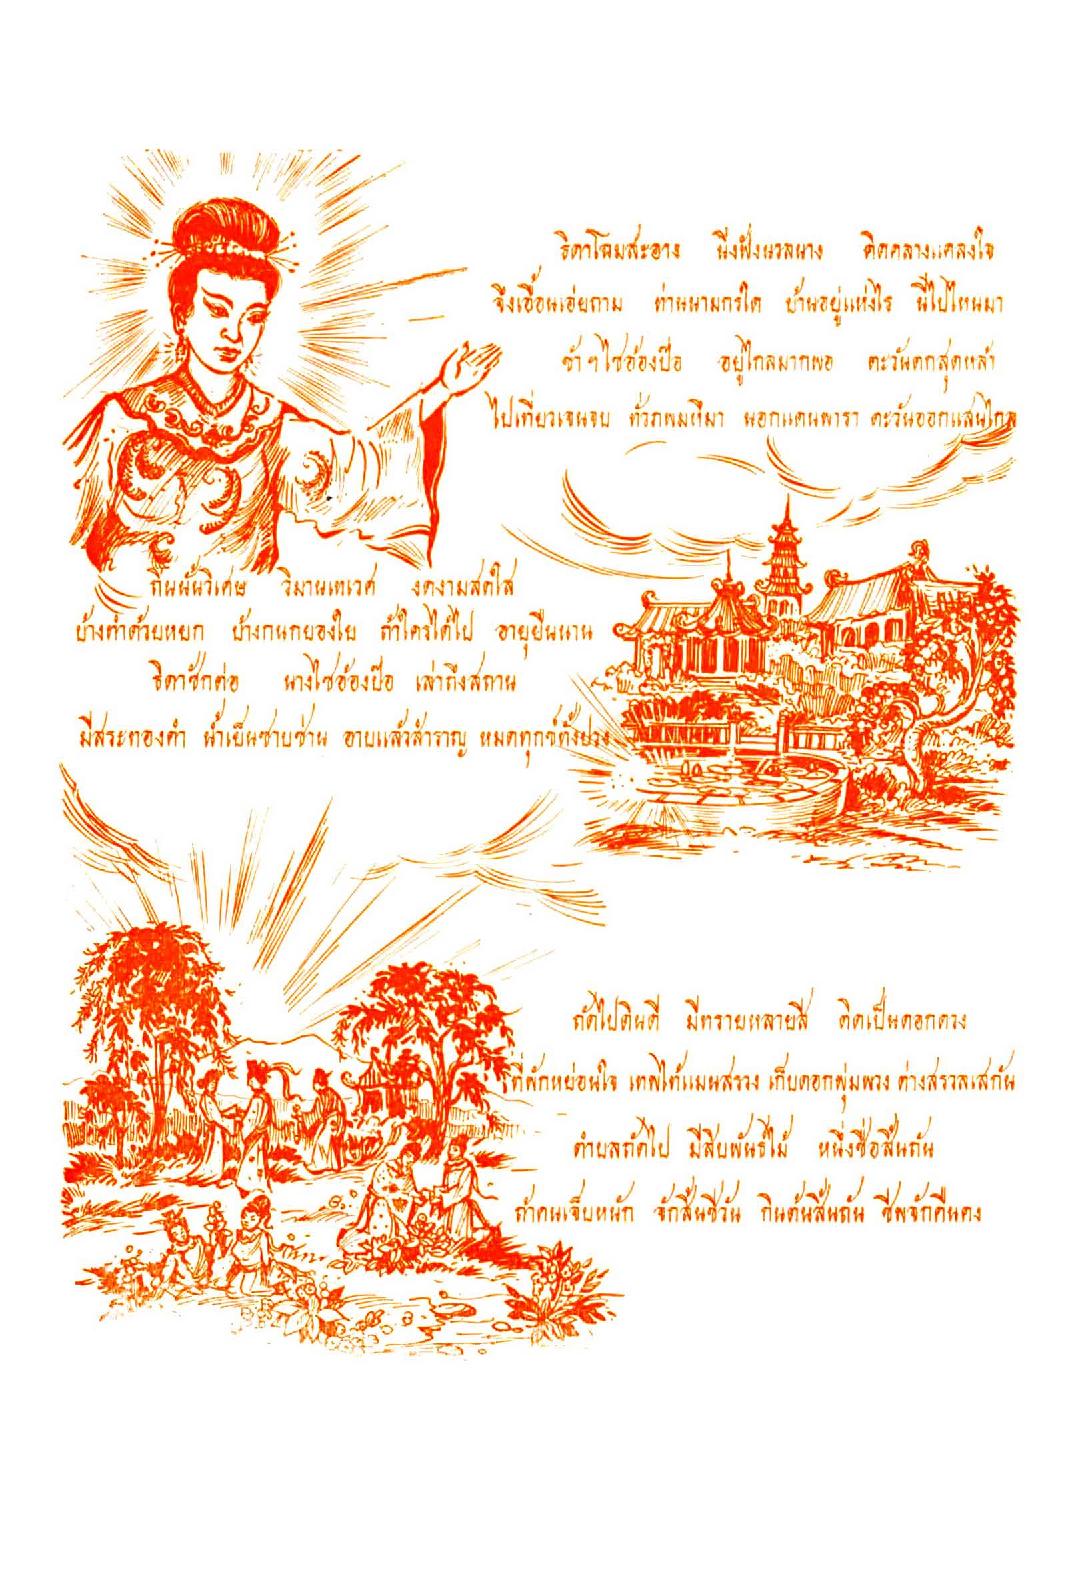 ธิดาโฉมสะอาง นึ่งฟังนวลนาง คิดคลางแคลงใจ
จึงเอื้อนเอ่ยถาม ท่านนามกรใด บ้านอยู่แห่งไร นี่ไปไหนมา
ข้าฯไซอ้องป๊อ อยู่ไกลมากพอ ตะวันตกสุดหล้า
ไปเที่ยวเจนจบ ทั่วภพมหึมา นอกแดนพารา ตะวันออกแสนไกล
ถิ่นนั้นวิเศษ วิมานเทเวศ งดงามสดใส
บ้างทำด้วยหยก บ้างกนกยองใย ถ้าใครได้ไป อายุยืนนาน
ธิดาซักต่อ นางไซอ้องป๊อ เล่าถึงสถาน
มีสระทองคำ น้ำเย็นซ่าบซ่าน อาบแล้วสำราญ หมดทุกข์ทั้งปวง
ถัดไปดินดี มีทรายหลายสี ติดเป็นดอกดวง
ที่พักหย่อนใจ เทพไท้แมนสรวง เก็บดอกพุ่มพวง ต่างสรวลเสกัน
ตำบลถัดไป มีสิบพันธุ์ไม้ หนึ่งชื่อสืนถัน
ถ้าคนเจ็บหนัก จักสิ้นชีวัน กินต้นสืนถัน ชีพจักคืนคง